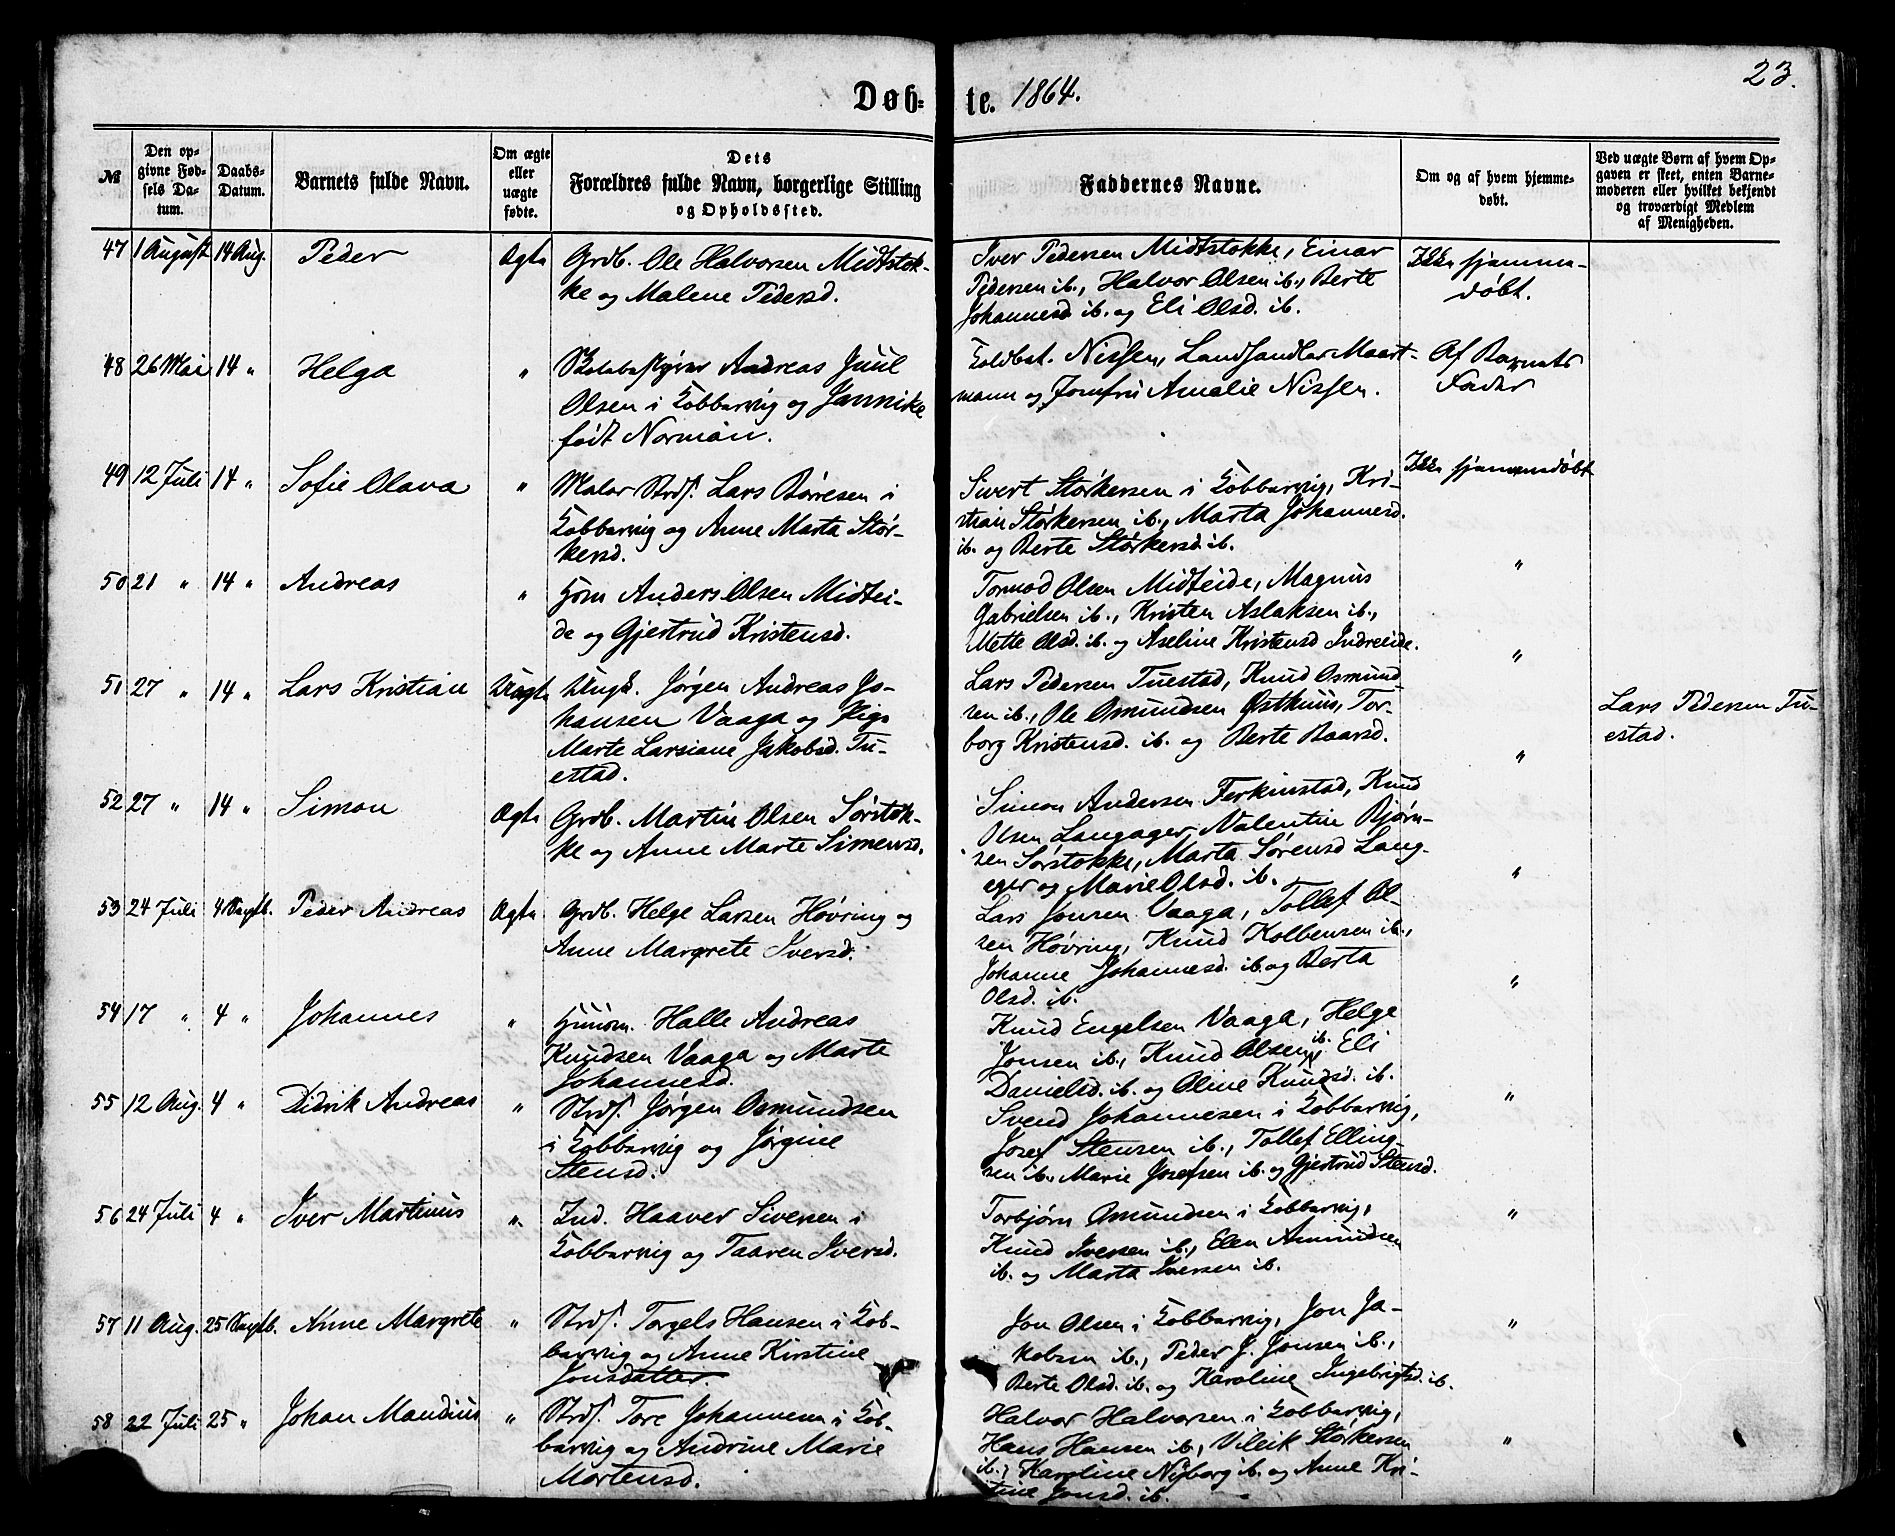 23.
Døb-te. 1864.
№
Den op-
givne Fød-
sels Da-
tum.
Daabs-
Datum.
Barnets fulde Navn.
Om ægte
eller
uægte
fødte.
Dets
Forældres fulde Navn, borgerlige Stilling
og Opholdssted.
Faddernes Navne.
Om og af hvem hjemme-
døbt.
Ved uægte Børn af hvem Op-
gaven er skeet, enten Barne-
moderen eller hvilket bekjendt
og troværdigt Medlem
af Menigheden.
47 1 August 14 Aug. Peder Ægte
Grdb. Ole Halvorsen Midtstok-
ke og Malene Pedersd.
Iver Pedersen Midtstokke, Einar
Pedersen ib., Halvor Olsen ib., Berte
Johannesd. ib. og Eli Olsd. ib.
Ikke hjemme-
døbt.
48 26 Mai 14 " Helga "
Andreas Juul
Olsen i Kobbervig og Jannike
født Norman.
Toldbet. Nissen, Landhandler Maart-
mann og Jomfru Amalie Nissen.
Af Barnets
Fader
49 12 Juli 14 " Sofie Olava "
Maler Strds. Lars Børresen i
Kobbervig og Anne Marta Stør-
kersd.
Sivert Størkersen i Kobbervig, Kri-
stian Størkersen ib., Marta Johannesd.
ib. og Berte Størkersd. ib.
Ikke hjemmedøbt
50 21 " 14 " Andreas "
Hsm Anders Olsen Midtei-
de og Gjertrud Kristensd.
Tormod Olsen Midteide, Magnus
Gabrielsen ib., Kristen Aslaksen ib.,
Mette Olsd. ib. og Aseline Kristensd Indreeide.
"
51 27 " 14 " Lars Kristian Uægte
Ungk. Jørgen Andreas Jo-
hansen Vaaga og Pige
Marte Larsiane Jakobsd. Tu-
estad.
Lars Pedersen Tuestad, Knud Osmund-
sen ib., Ole Omundsen Østhuus, Tor-
borg Kristensd. ib. og Berte Baarsd.
"
Lars Pedersen Tu-
estad.
52 27 " 14 " Simon Ægte
Grdb. Martin Olsen Sørstok-
ke og Anne Marte Simensd.
Simon Andersen Ferkinstad, Knud
Olsen Langager, Valentin Bjørn-
sen Sørstokke, Marta Sørensd Lang-
eger og Marie Olsd. ib.
"
53 24 Juli 4 Septb. Peder Andreas Ægte
Grdb. Helge Larsen Høvring og
Anne Margrete Iversd.
Lars Jonsen Vaaga, Tollef Ol-
sen Høvring, Knud Kolbensen ib.,
Johanne Johannesd. ib. og Berta
Olsd. ib.
"
54 17 " 4 " Johannes "
Halle Andreas
Knudsen Vaaga og Marte
Johannesd.
Knud Engelsen Vaaga, Helge
Jonsen ib., Knud Olsen ib., Eli
Danielsd. ib. og Oline Knudsd. ib.
"
55 12 Aug. 4 " Didrik Andreas "
Strds. Jørgen Osmundsen
i Kobbervig og Jørgine
Stensd.
Svend Johannesen i Kobbervig,
Josef Stensen ib., Tollef Elling-
sen ib., Marie Josefsen ib. og Gjertrud Stensd.
"
56 24 Juli 4 " Iver Martinus "
Ind. Haaver Siversen i
Kobbervig og Taaren Iversd.
Torbjørn Omundsen i Kobbervig,
Knud Iversen ib., Elen Amundsen
ib. og Marta Iversen ib.
"
57 11 Aug. 25 Septb. Anne Margrete "
Strds. Torgels Hansen i Kob-
bervig og Anne Kirstine
Jonsdatter.
Jon Olsen i Kobbervig, Jon Ja-
kobsen ib., Peder J. Jonsen ib.,
Berte Olsd. ib. og Karoline Ingebrigtsd. ib.
"
58 22 Juli 25 " Johan Mandius "
Strds. Tore Johannesen i Kob-
bervig og Andrine Marie
Mortensd.
Halvor Halvorsen i Kobbervig,
Hans Hansen ib., Vileik Størkersen
ib., Karoline Nyborg ib. og Anne Kri-
stine Jonsd. ib.
"